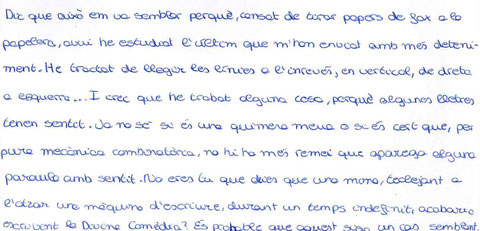 Dic que això em va semblar perquè, cansat de tirar papers de fax a la
paperera, avui he estudiat l'últim que m'han enviat amb més deteni-
ment. He tractat de llegir les línies a l'inrevés, en vertical, de dreta
a esquerra... I crec que he trobat alguna cosa, perquè algunes lletres
tenen sentit. Ja no sé si és una quimera meva o si és cert que, per
pura mecànica combinatòria, no hi ha més remei que aparegui alguna
paraula amb sentit. No eres tu que deies que una mona, teclejant a
l'atzar una màquina d'escriure, durant un temps indefinit, acabaria
escrivint la Divina Comèdia? És probable que aquest sigui un cas semblant.